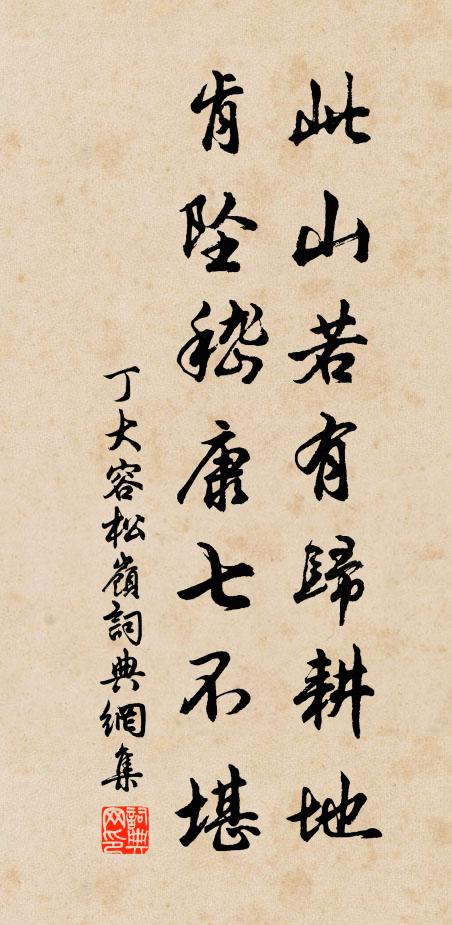 此山若有歸耕地
肯墜嵇康七不堪
丁大容松嶺詞典網集
詞典网印